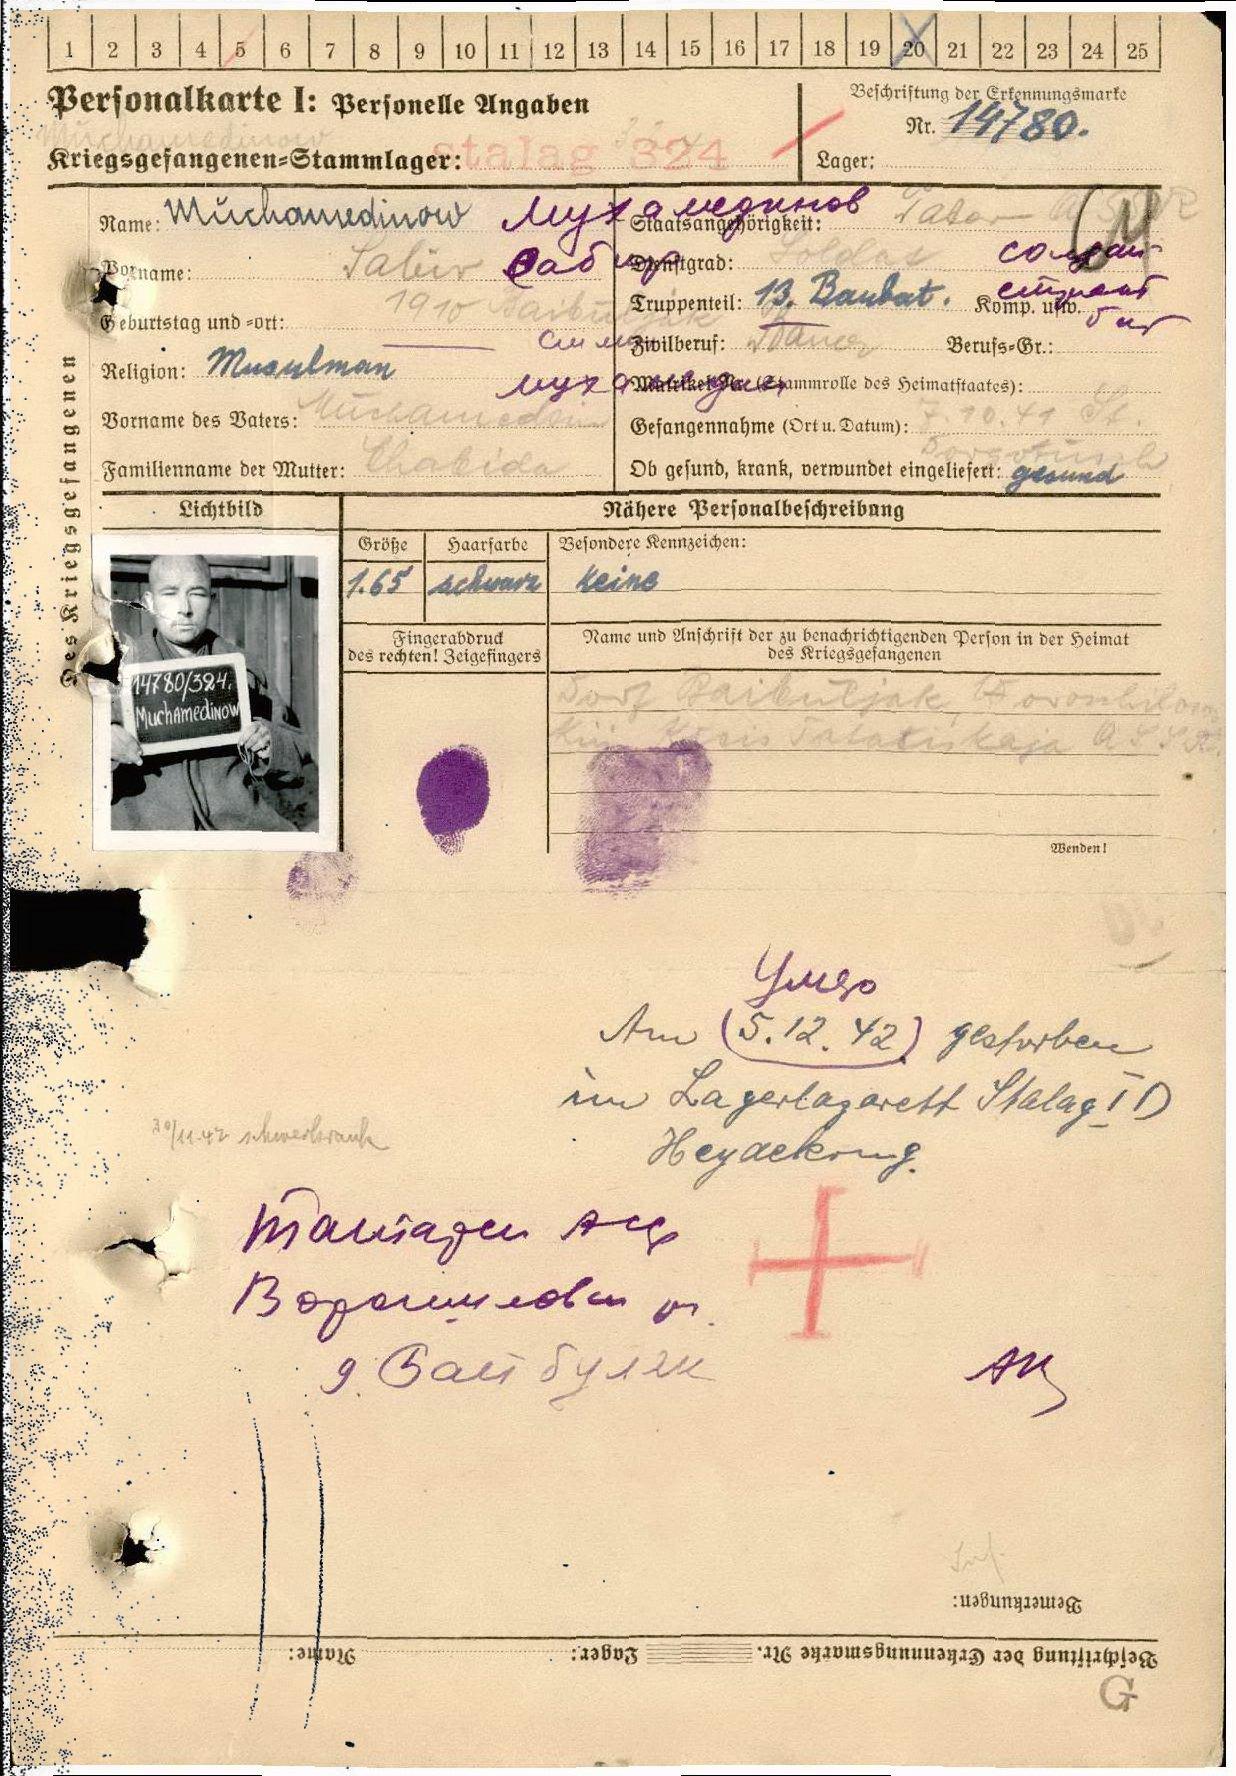 1 2 3 4 5 6 7 8 9 10 11 12 13 14 15 16 17 18 19 20 21 22 23 24 25
Personalkarte I: Personelle Angaben
Beschriftung der Erkennungsmarke
Nr. 14780.
Kriegsgefangenen-Stammlager: Stalag 324
Lager:
Des Kriegsgefangenen
Name: Muchamedinow Мухамединов
Vorname: Sabir Сабир
Geburtstag und -ort: 1910 Baibuljak
Religion: Musulman
Vorname des Vaters: Muchamedin
Familienname der Mutter: Chabida
Staatsangehörigkeit: Tatar
Dienstgrad: Soldat солдат
Truppenteil: 13. Baubat. Komp. usw. строит бат
Zivilberuf: Berufs-Gr.:
Matrikel Nr. (Stammrolle des Heimatstaates):
Gefangennahme (Ort u. Datum): 7.10.41 St.
Ob gesund, krank, verwundet eingeliefert: gesund
Lichtbild
Nähere Personalbeschreibung
Größe Haarfarbe Besondere Kennzeichen:
1.65 schwarz keine
Fingerabdruck
des rechten! Zeigefingers
Name und Anschrift der zu benachrichtigenden Person in der Heimat
des Kriegsgefangenen
Dorf Baibuljak, Woroschilow
14780/324.
Muchamedinow
Wenden!
Умер
Am (5.12.42) gestorben
im Lagerlazarett Stalag I D
Heydekrug.
30/11.42 schwerkrank
Ворошиловск
д. Байбуляк
Bemerkungen:
Beschriftung der Erkennungsmarke Nr. Lager: Name:
G